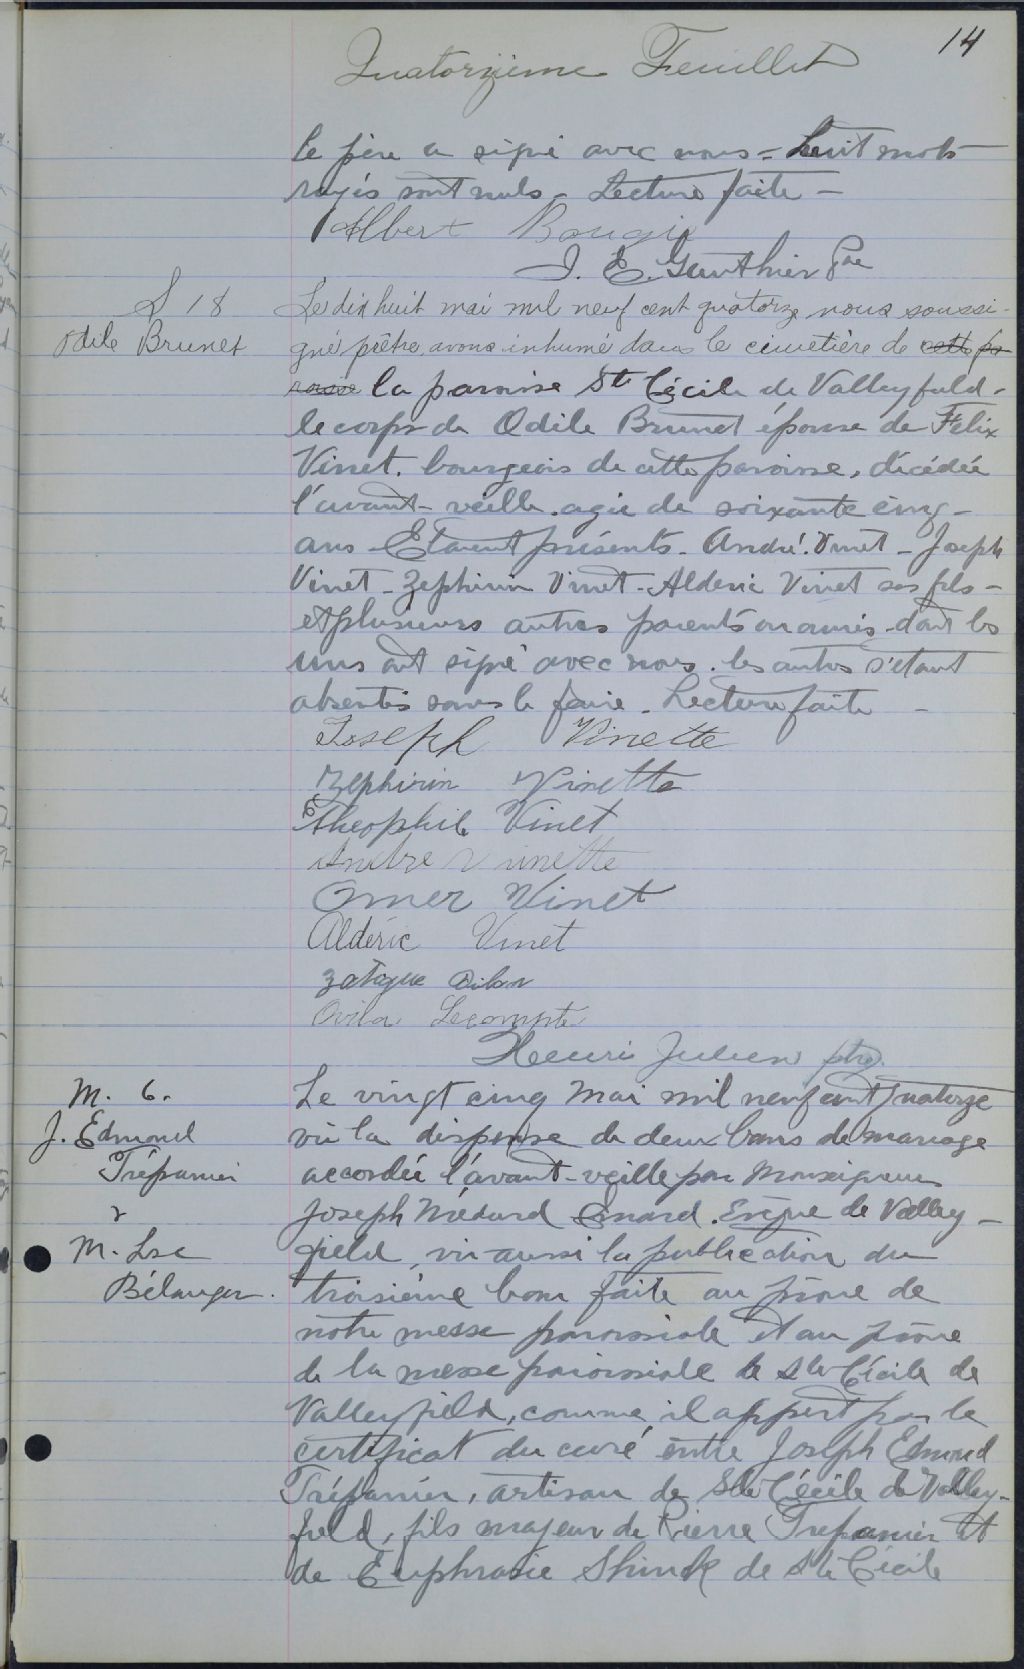 14
Quatorzième Feuillet
le père a signé avec nous = Huit mots
rayés sont nuls - Lecture faite -
Albert Bougie
J. E. Gauthier Ptre
S 18
Odile Brunet
Le dix huit mai mil neuf cent quatorze nous soussi-
gné prêtre avons inhumé dans le cimetière de cette pa
roisse la paroisse Ste Cécile de Valleyfield-
le corps de Odile Brunet épouse de Félix
Vinet. bourgeois de cette paroisse, décédée
l'avant-veille agée de soixante cinq-
ans - Etaient présents - André Vinet - Joseph
Vinet - Zephirin Vinet - Alderic Vinet ses fils -
et plusieurs autres parents ou amis - dont les
uns ont signé avec nous. les autres s'étant
absentés sans le faire - Lecture faite -
Joseph Vinette
Zephirin Vinette
Theophile Vinet
Andre Vinette
Omer Vinet
Aldéric Vinet
Zotique
Ovila Lecompte
Henri Julien ptre.
M. 6.
J. Edmond
Trépanier
&
M. Lse
Bélanger.
Le vingt cinq Mai mil neuf cent quatorze
vu la dispense de deux bans de mariage
accordée l'avant-veille par Monseigneur
Joseph Médard Emard. Evêque de Valley-
field, vu aussi la publication du
troisième ban faite au prône de
notre messe paroissiale et au prône
de la messe paroissiale de Ste Cécile de
Valleyfield, comme il appert par le
certificat du curé entre Joseph Edmond
Trépanier, artisan de Ste Cécile de Valley-
field, fils majeur de Pierre Trepanier et
de Euphrasie Shink de Ste Cécile